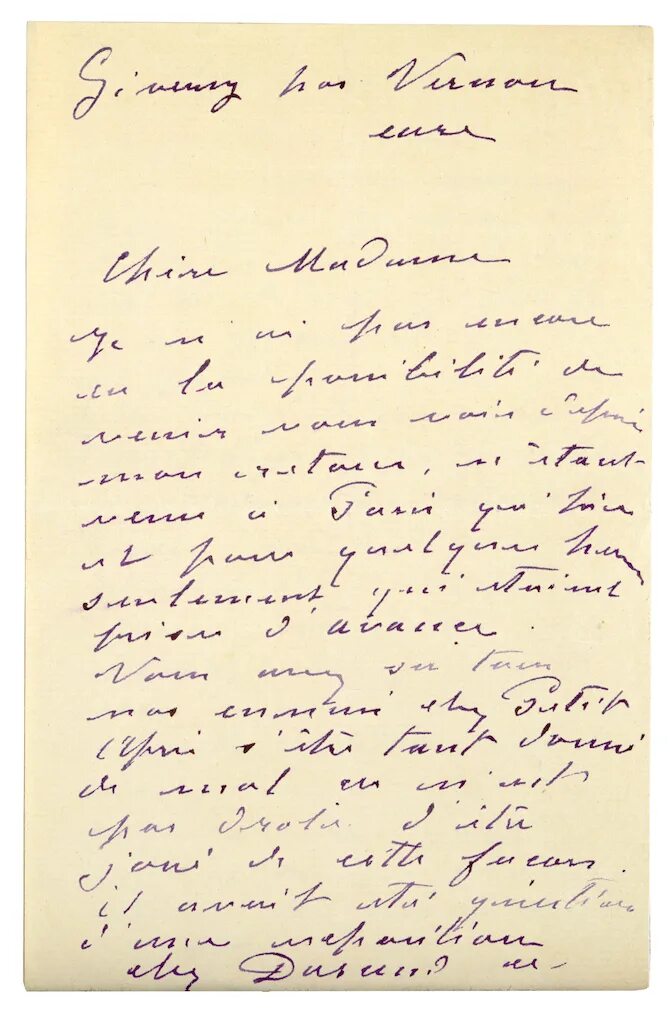 Giverny par Vernon
eure
Chère Madame
Je n'ai pas encore
eu la possibilité de
venir vous voir depuis
mon retour, n'étant
venu à Paris qu'hier
et pour quelques heures
seulement qui étaient
prises d'avance.
Vous avez su tous
nos ennuis chez Petit
après s'être tant donné
de mal ce n'est
pas drôle d'être
joué de cette façon.
il avait été question
d'une exposition
chez Durand ce-